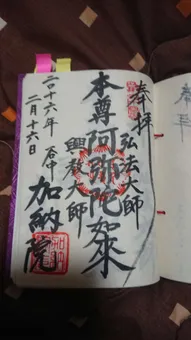 奉拝
弘法大師
本尊阿弥陀如来
興教大師
二〇十六年 谷中 加納院
二月十六日